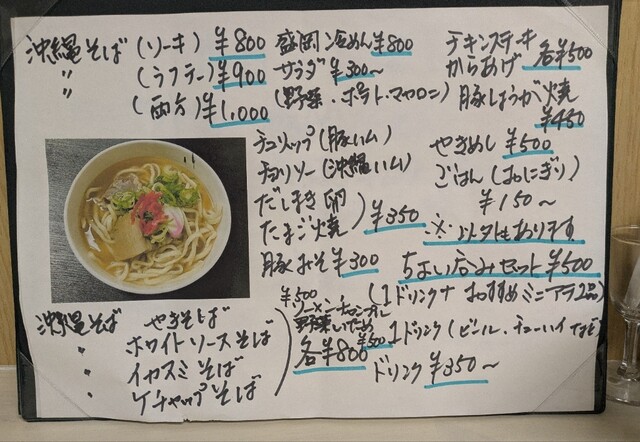 沖縄そば (ソーキ) ¥800
〃 (ラフテー) ¥900
(両方) ¥1,000
盛岡冷めん ¥800
サラダ ¥300~
(野菜・ポテト・マカロニ)
チキンステーキ
からあげ 各¥500
豚しょうが焼
¥450
チュリップ (豚ハム)
チョリソー (沖縄ハム)
だしまき卵
たまご焼 ¥350
豚みそ ¥300
やきめし ¥500
ごはん (おにぎり)
¥150~
※以外もあります
ちょい呑みセット ¥500
(1ドリンクト おすすめミニアテ2品)
1ドリンク (ビール、チューハイなど)
ドリンク ¥350~
沖縄そば やきそば
〃 ホワイトソースそば
〃 イカスミそば
〃 ケチャップそば
各¥800
¥500
ソーメンチャンプル
野菜いため
¥500